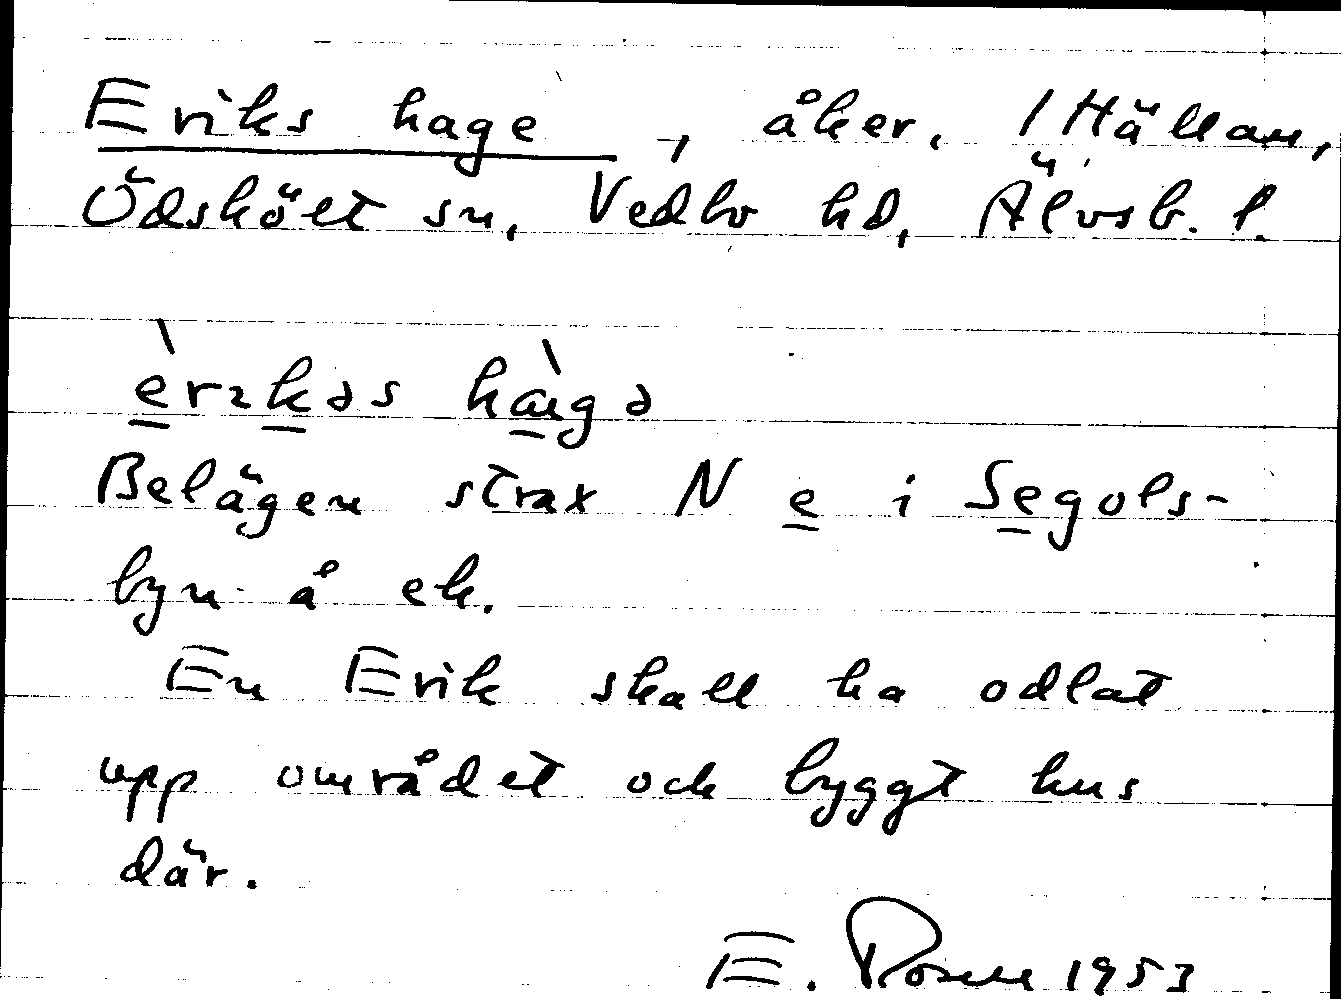 Eriks hage, åker. 1 Hällan,
Ödskölt sn, Vedbo hd, Älvsb. l.
èrɿkəs hàgə
Belägen strax N e i Segols-
byn å ek.
En Erik skall ha odlat
upp området och byggt hus
där.
E. Rosell 1953